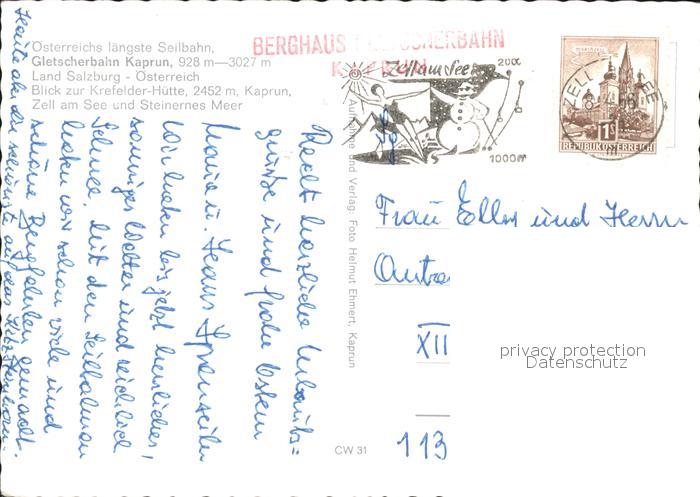 Österreichs längste Seilbahn,
Gletscherbahn Kaprun, 928 m—3027 m
Land Salzburg - Österreich
Blick zur Krefelder-Hütte, 2452 m, Kaprun,
Zell am See und Steinernes Meer
BERGHAUS GLETSCHERBAHN
KAPRUN
Zell am See
200
1000m
ZELL AM SEE
1S
REPUBLIK ÖSTERREICH
Aufnahme und Verlag: Foto Helmut Ehmert, Kaprun
CW 31
Recht herzliche Urlaubs=
grüsse und frohe Ostern
Hans
Wir haben bis jetzt herrliches,
sonniges Wetter und reichlich
Schnee. Mit den Seilbahnen
haben wir schon viele und
schöne Bergfahrten gemacht.
Heute
Frau Elles und Herrn
XII
113
privacy protection
Datenschutz